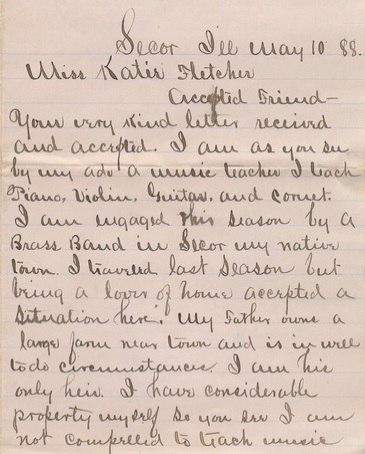 Secor Ill May 10 88.
Miss Katie Fletcher
Accepted Friend—
Your very kind letter received
and accepted. I am as you see
by my adv a music teacher I teach
Piano, Violin, Guitar, and Cornet.
I am engaged this season by a
Brass Band in Secor my native
town. I traveled last season but
being a lover of home accepted a
situation here. My Father owns a
large farm near town and is in well
to do circumstances. I am his
only heir. I have considerable
property myself so you see I am
not compelled to teach music